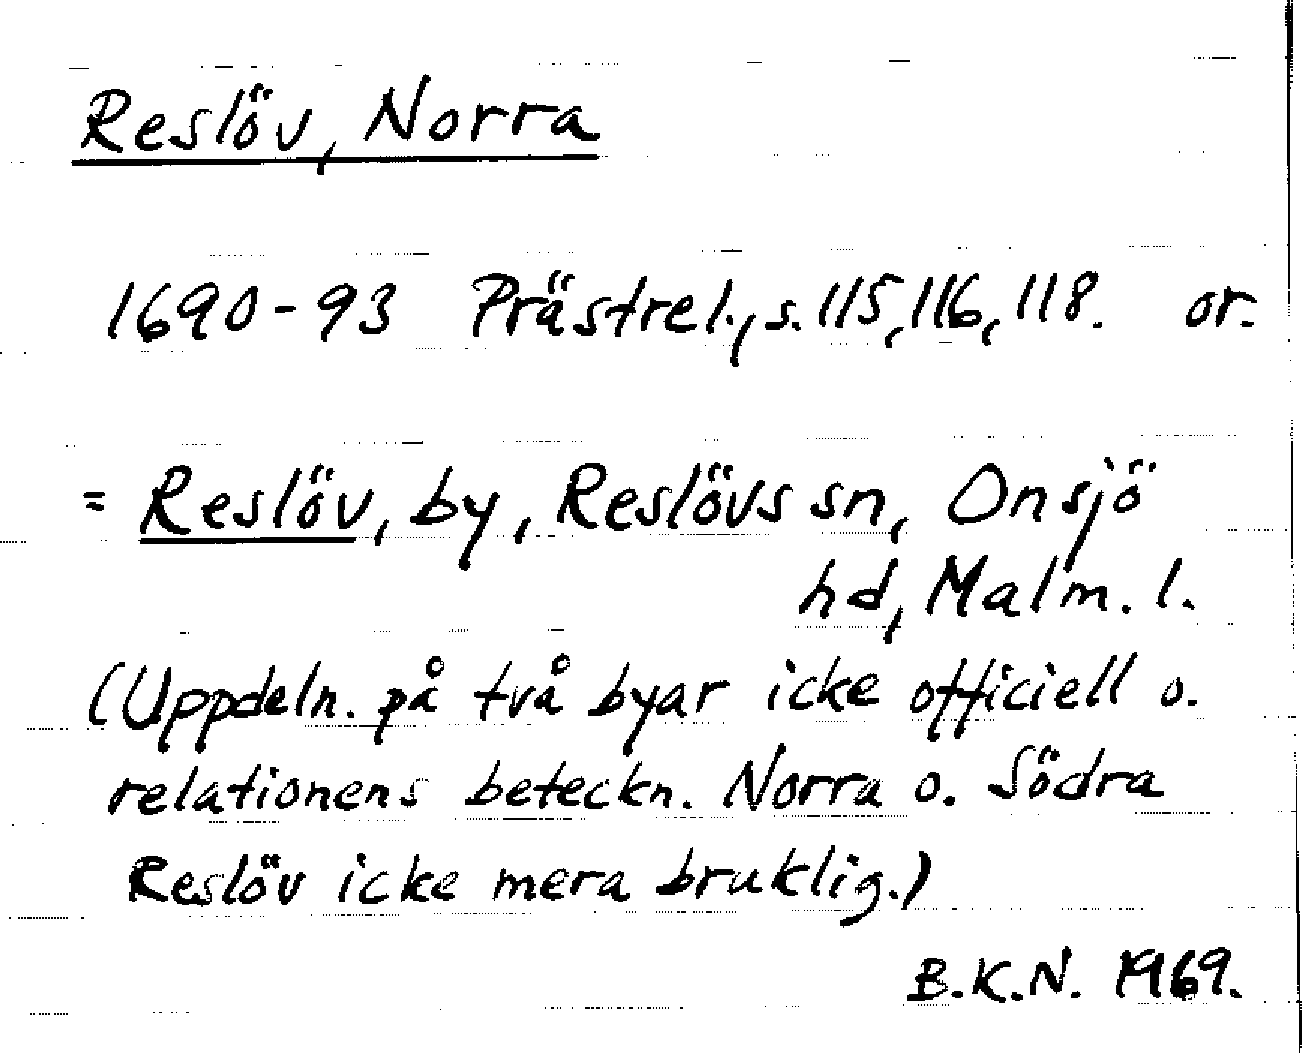 Reslöv, Norra
1690-93 Prästrel., s. 115, 116, 118. or.
= Reslöv, by, Reslövs sn, Onsjö
hd, Malm. l.
(Uppdeln. på två byar icke officiell o.
relationens beteckn. Norra o. Södra
Reslöv icke mera bruklig.)
B.K.N. 1969.